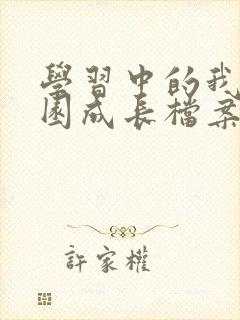 學習中的我
園成長檔案
許家權